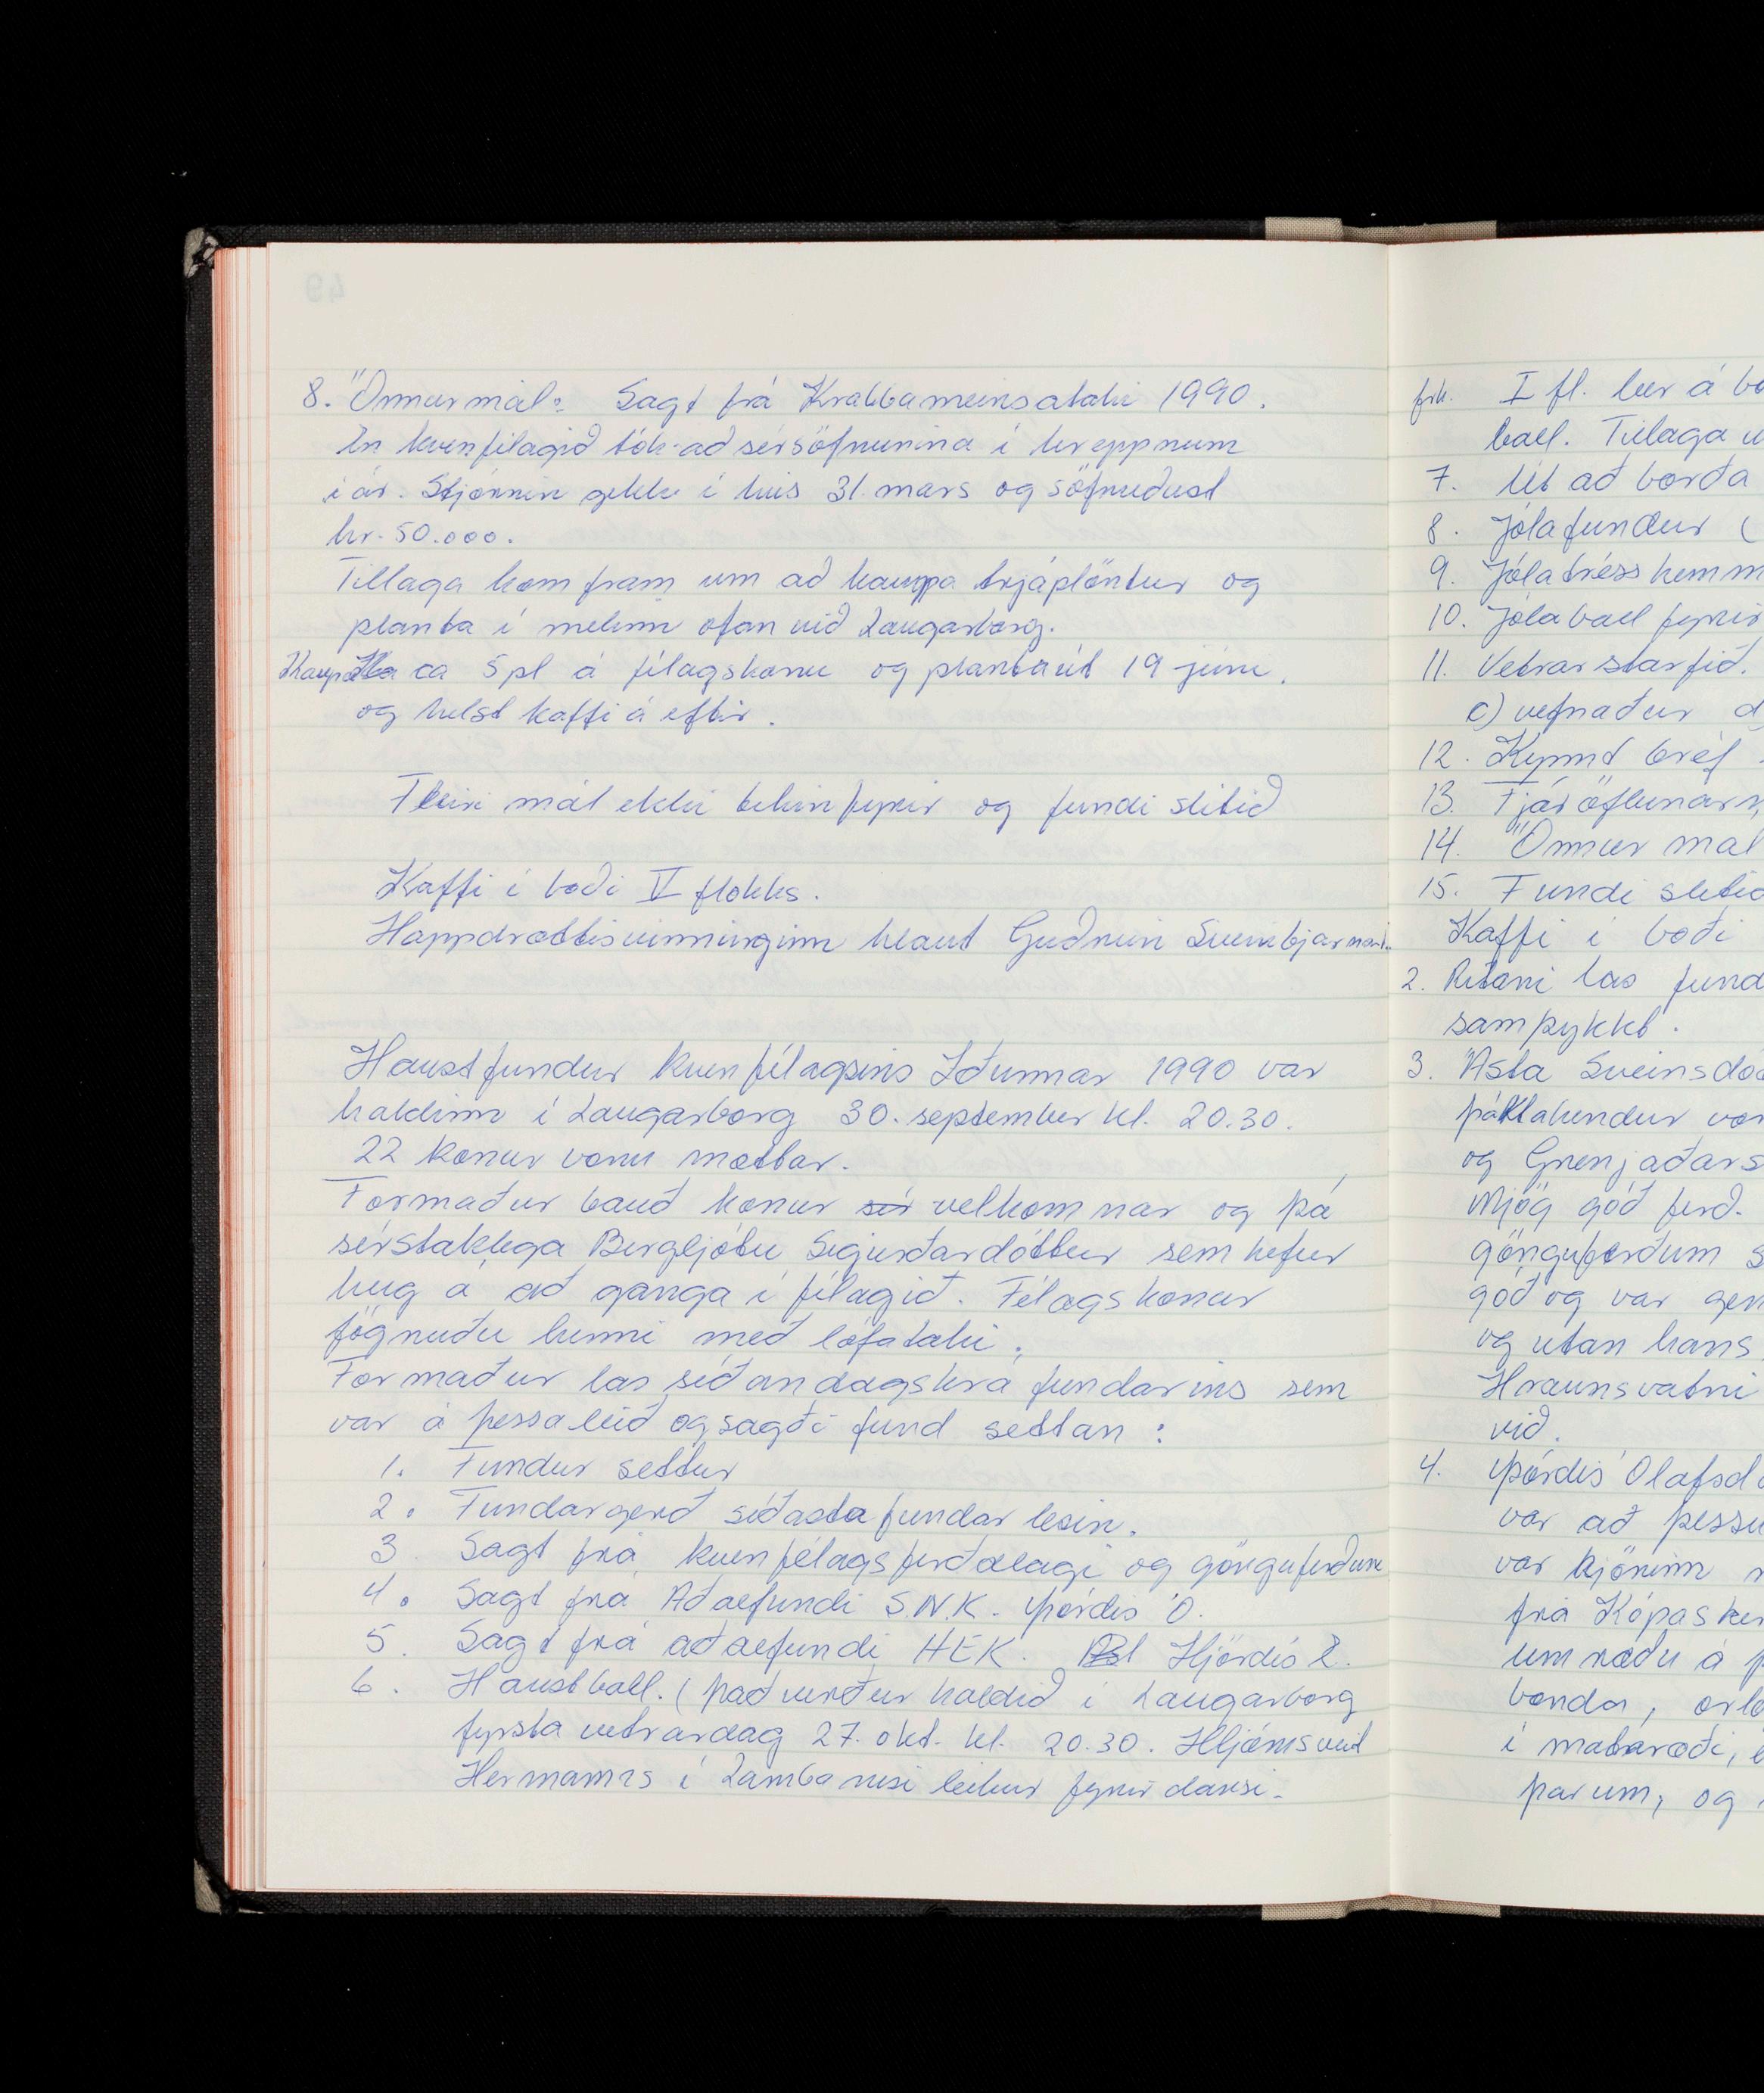 8. Önnur mál: Sagt frá Krabbameinsátaki 1990.
En kvenfélagið tók að sér söfnunina í hreppnum
í ár. Stjórnin gekk í hús 31. mars og söfnuðust
kr. 50.000.
Tillaga kom fram um að kaupa trjáplöntur og
planta í melinn ofan við Laugarborg.
Kaupa ca 5 pl á félagskonu og planta út 19 júní.
og helst kaffi á eftir.
Fleiri mál ekki tekin fyrir og fundi slitið
Kaffi í boði V flokks.
Happdrættisvinninginn hlaut Guðrún Sveinbjarnard.
Haustfundur kvenfélagsins Iðunnar 1990 var
haldinn í Laugarborg 30. september kl. 20.30.
22 konur voru mættar.
Formaður bauð konur sér velkomnar og þá
sérstaklega Bergljótu Sigurðardóttur sem hefur
hug á að ganga í félagið. Félagskonur
fögnuðu henni með lófataki.
Formaður las síðan dagskrá fundarins sem
var á þessa leið og sagði fund settan:
1. Fundur settur
2. Fundargerð síðasta fundar lesin.
3 Sagt frá kvenfélagsferðalagi og gönguferðum
4. Sagt frá Aðalfundi S.N.K. Þórdís Ó.
5. Sagt frá aðalfundi HEK. Hjördís
6. Haustball. (það verður haldið í Laugarborg
fyrsta vetrardag 27. okt. kl. 20.30. Hljómsveit
Hermanns í Lambanesi leikur fyrir dansi.
frh. I fl. ber á bo
ball. Tillaga u
7. Út að borða
8. Jólafundur (
9. Jólatrésskemm
10. Jólaball fyrir
11. Vetrarstarfið.
c) vefnaður d
12. Kynnt bréf
13. Fjáröflunarn
14. Önnur mál
15. Fundi slitið
Kaffi í boði
2. Ritari las fund
samþykkt.
3. Ásta Sveinsdó
þátttakendur vor
og Grenjaðars
Mjög góð ferð.
gönguferðum s
góð og var gen
og utan hans
Hraunsvatni
við.
4. Þórdís Ólafsd
var að þessu
var kjörinn
frá Kópasker
umræðu á þ
bænda, orlo
í mataræði,
þar um, og